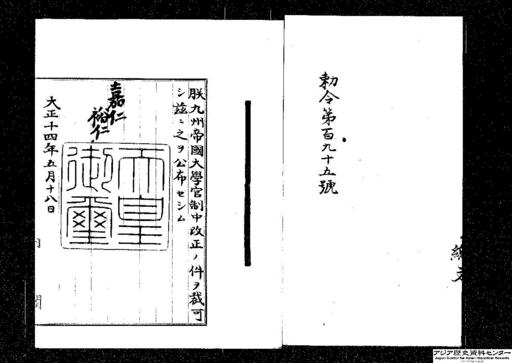 勅令第百九十五號
朕九州帝國大學官制中改正ノ件ヲ裁可
シ茲ニ之ヲ公布セシム
嘉仁
裕仁
天皇御璽
大正十四年五月十八日
内閣
アジア歴史資料センター
Japan Center for Asian Historical Records